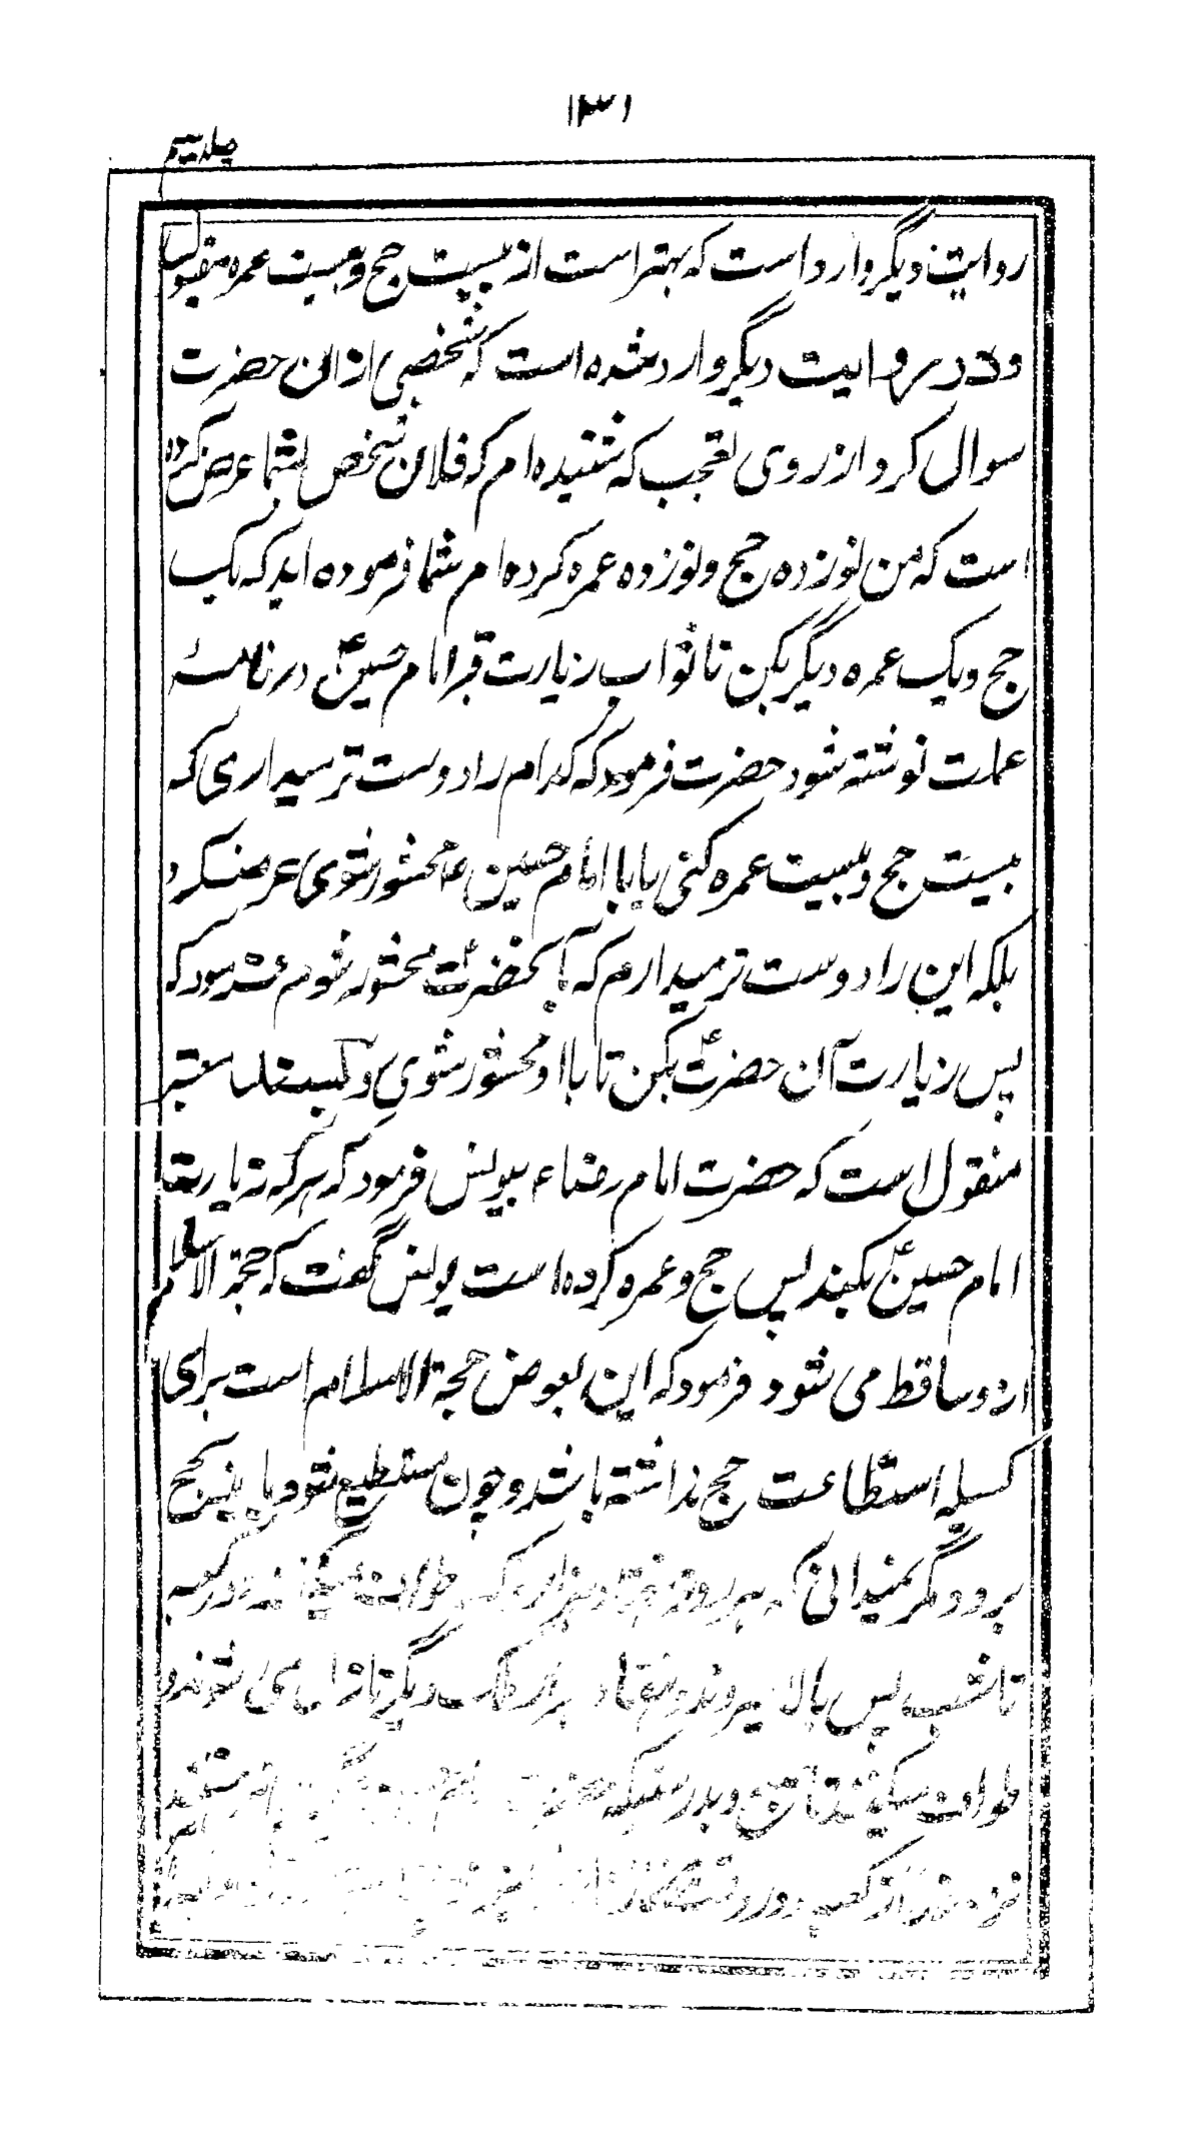 ۱۳۱
روایت دیگر وارد است که بهتر است از بیست حج و بیست عمره مقبول
و در روایت دیگر وارد شده است که شخصی از ان حضرت
سوال کرد از روی تعجب که شنیده ام که فلان شخص بشما عرض کرده
است که من نوزده حج و نوزده عمره کرده ام شما فرموده اید که یک
حج و یک عمره دیگر بکن تا ثواب زیارت قبر امام حسین ع در نامه
عملت نوشته شود حضرت فرمود که کدام را دوست تر میداری که
بیست حج و بیست عمره کنی یا با امام حسین ع محشور شوی عرض کرد
بلکه این را دوست تر میدارم که با آنحضرت ع محشور شوم فرمود که
پس زیارت آن حضرت ع بکن تا با او محشور شوی و بسند معتبر
منقول است که حضرت امام رضا ع بیونس فرمود که هر که زیارت
امام حسین ع بکند پس حج و عمره کرده است یونس گفت که حجة الاسلام
از و ساقط می شود فرمود که این بعوض حجة الاسلام است برای
کسیکه استطاعت حج نداشته باشد و چون مستطیع شود باید حج
برود و مگر نمیدانی که هر روز هفتاد هزار ملک طواف خانه کعبه
تا شب پس بالا میروند و هفتاد هزار ملک دیگر نازل می شوند و
طواف میکنند تا صبح و بدرستیکه
از کعبه